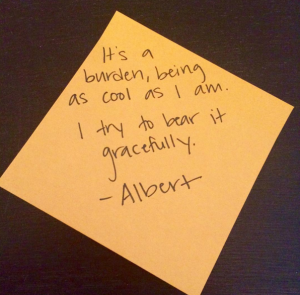 It's a
burden, being
as cool as I am.
I try to bear it
gracefully.
- Albert